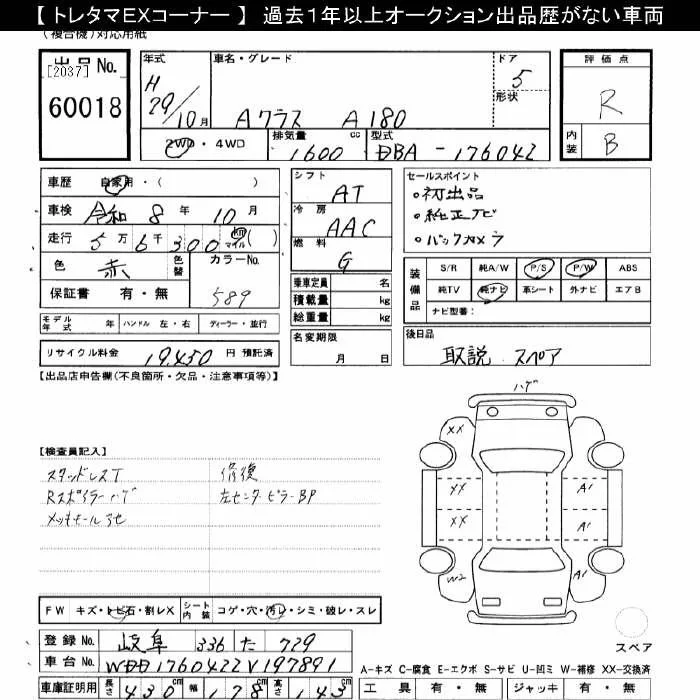 【トレタマEXコーナー】 過去1年以上オークション出品歴がない車両
(複合機)対応用紙
出品No.
[2037]
60018
年式 H 29/10月
車名・グレード Aクラス A180
ドア 5
形状
2WD・4WD
排気量 1600 cc
型式 DBA-176042
評価点 R
内装 B
車歴 自家用・( )
車検 令和 8年 10月
走行 5万6千300 km マイル ( )
色 赤 色替
カラーNo. 589
保証書 有・無
シフト AT
冷房 AAC
燃料 G
乗車定員 名
積載量 kg
総重量 kg
名変期限 月 日
セールスポイント
・初出品
・純正ナビ
・バックカメラ
装備品 S/R 純A/W P/S P/W ABS
純TV 純ナビ 革シート 外ナビ エアB
ナビ型番:
モデル年式 年 ハンドル 左・右 ディーラー・並行
リサイクル料金 19,450 円 預託済
後日品
取説 スペア
【出品店申告欄(不良箇所・欠品・注意事項等)】
【検査員記入】
スタッドレスT 修復
Rスポイラーハゲ 左センターピラーBP
メッキモール
ハゲ
XX
XX A1
XX A1
W2 A1
スペア
FW キズ・トビ石・割レX シート内装 コゲ・穴・汚レ・シミ・破レ・スレ
登録No. 岐阜 336 た 729
車台No. WDD1760422V197891
車庫証明用 長さ 430cm 幅 178cm 高さ 143cm
A-キズ C-腐食 E-エクボ S-サビ U-凹ミ W-補修 XX-交換済
工具 有・無 ジャッキ 有・無